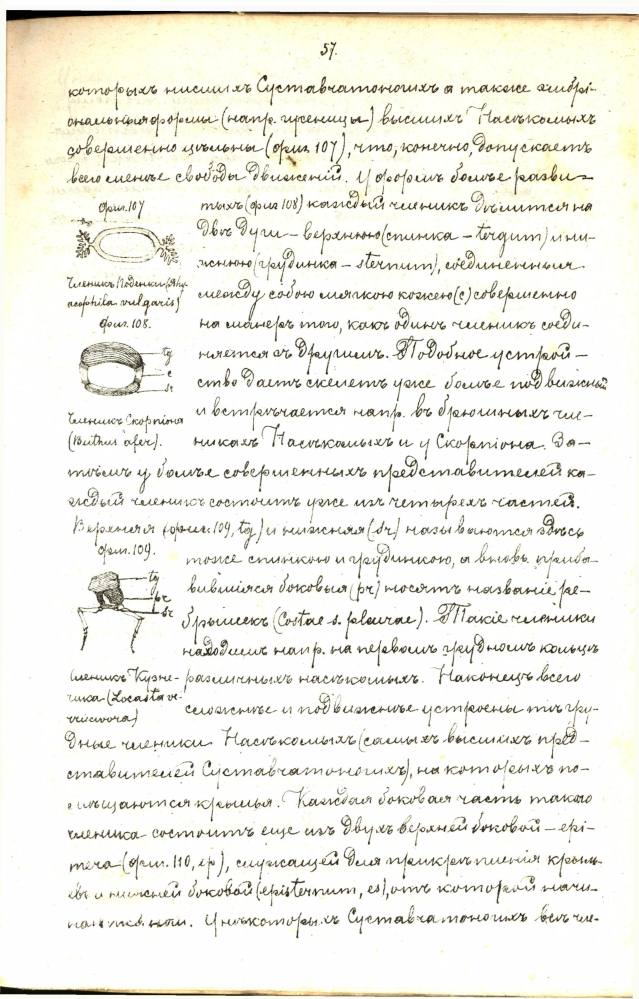 57.
которыхъ низшихъ Суставчатоногихъ а также эмбрі-
ональныя формы (напр. гусеницы) высшихъ Насѣкомыхъ
совершенно цѣльны (фиг. 107), что, конечно, допускаетъ
всего менѣе свободы движеній. У формъ болѣе разви-
тыхъ (фиг 108) каждый членикъ дѣлится на
двѣ дуги – верхнюю (спинка – tergum) и ни-
жнюю (грудинка – sternum), соединенныя
между собою мягкою кожею (с) совершенно
на манеръ того, какъ одинъ членикъ соеди-
няется съ другимъ. Подобное устрой-
ство даетъ скелетъ уже болѣе подвижный
и встрѣчается напр. въ брюшныхъ чле-
никахъ Насѣкомыхъ и у Скорпіона. За-
тѣмъ у болѣе совершенныхъ представителей ка-
ждый членикъ состоитъ уже изъ четырехъ частей.
Верхняя (фиг. 109, tg) и нижняя (st) называются здѣсь
тоже спинкою и грудинкою, а вновь приба-
вившіяся боковыя (pr) носятъ названіе ре-
брышекъ (Costae s. pleurae). Такіе членики
находимъ напр. на первомъ грудномъ кольцѣ
различныхъ насѣкомыхъ. Наконецъ всего
сложнѣе и подвижнѣе устроены тѣ гру-
дные членики Насѣкомыхъ (самыхъ высшихъ пред-
ставителей Суставчатоногихъ), на которыхъ по-
мѣщаются крылья. Каждая боковая часть такого
членика состоитъ еще изъ двухъ верхней боковой – epi-
mera (фиг. 110, ep), служащей для прикрѣпленія крыль-
евъ и нижней боковой (episternum, es), отъ которой начи-
наются ноги. У нѣкоторыхъ Суставчатоногихъ всѣ чле-
фиг. 107
Членикъ Поденки (Rhy-
acophila vulgaris)
фиг. 108.
tg
c
st
Членикъ Скорпіона
(Buthus afer).
фиг. 109.
tg
pr
st
Членикъ Кузне-
чика (Locusta vi-
ridissima)